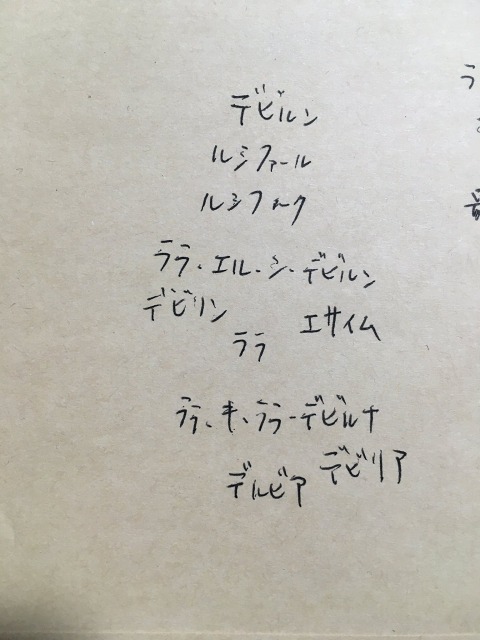 デビルン
ルシファール
ルシフォーク
ララ・エル・シ・デビルン
デビリン
エサイム
ララ
ラテ、キ、ララ・デビルナ
デビリア
デルビア
ラ